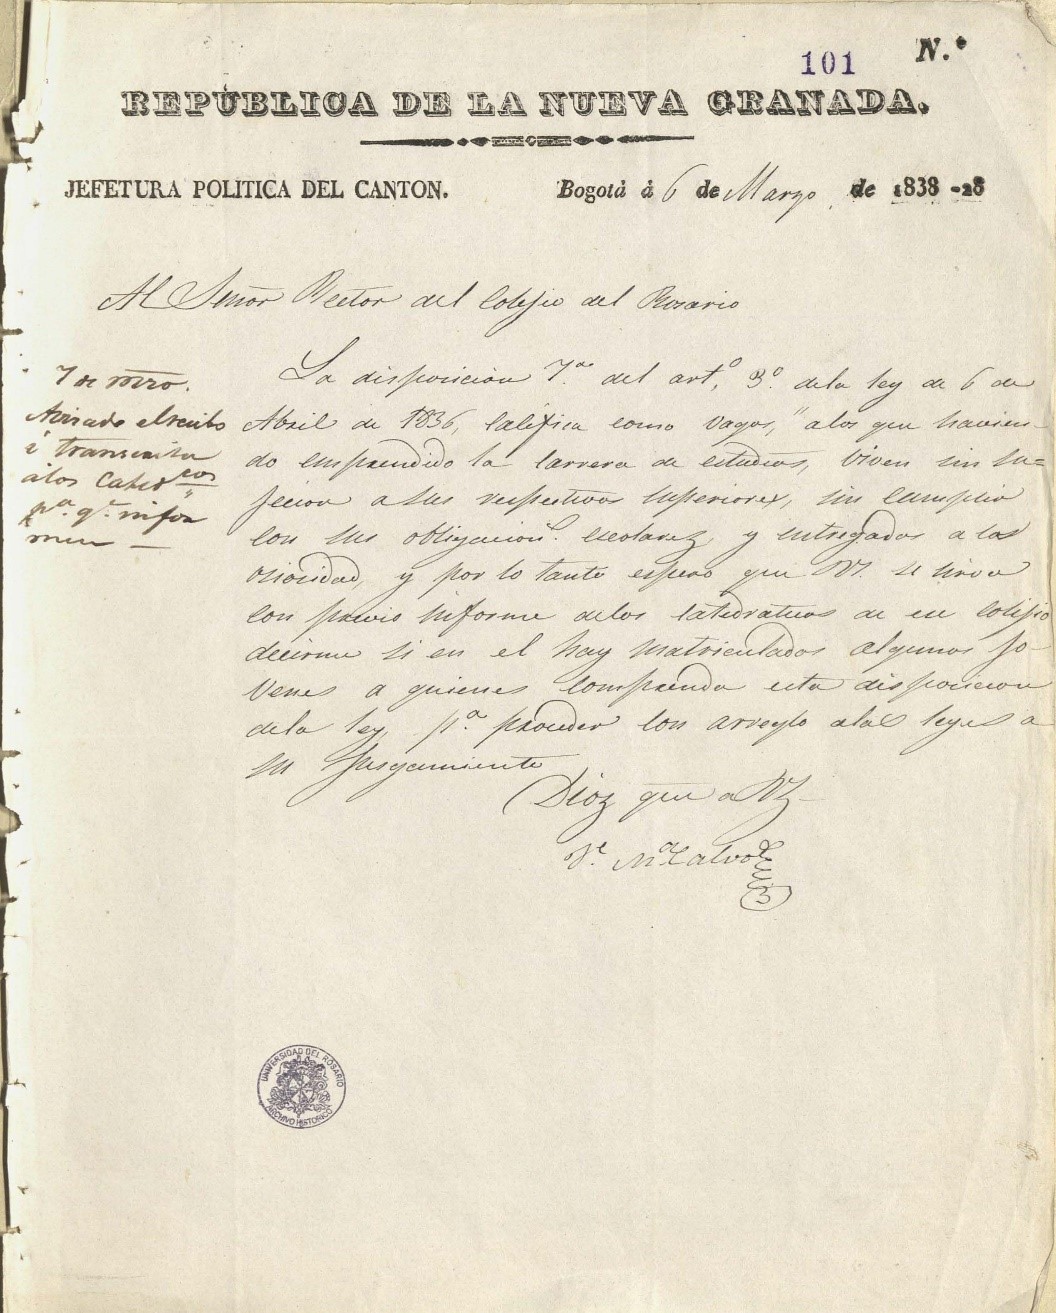 101
N.º
REPÚBLICA DE LA NUEVA GRANADA.
JEFETURA POLITICA DEL CANTON.
Bogotá á 6 de Marzo de 1838 -28
Al Señor Rector del Colejio del Rosario
7 de Mrzo.
Avisado el recibo
i transcrita
á los Catedcos
pa. qe. infor
men —
La disposicion 7.a del artº. 3º. dela ley de 6 de
Abril de 1836, califica como vagos, "alos que havien-
do emprendido la carrera de estudios, viven sin su=
jecion a sus respectivos superiores, sin cumplir
con sus obligacions. escolarez, y entregados a la
osiocidad, y por lo tanto espero que VS. se sirva
con previo informe delos catedraticos de ese Colejio
decirme si en el hay matriculados algunos jo-
venes a quienes comprenda esta disposicion
dela ley, pa. proceder con arreglo alas leyes a
su jusgamiento
Dioz gue a VS
Ve. Ma. Calvo
UNIVERSIDAD DEL ROSARIO
ARCHIVO HISTORICO